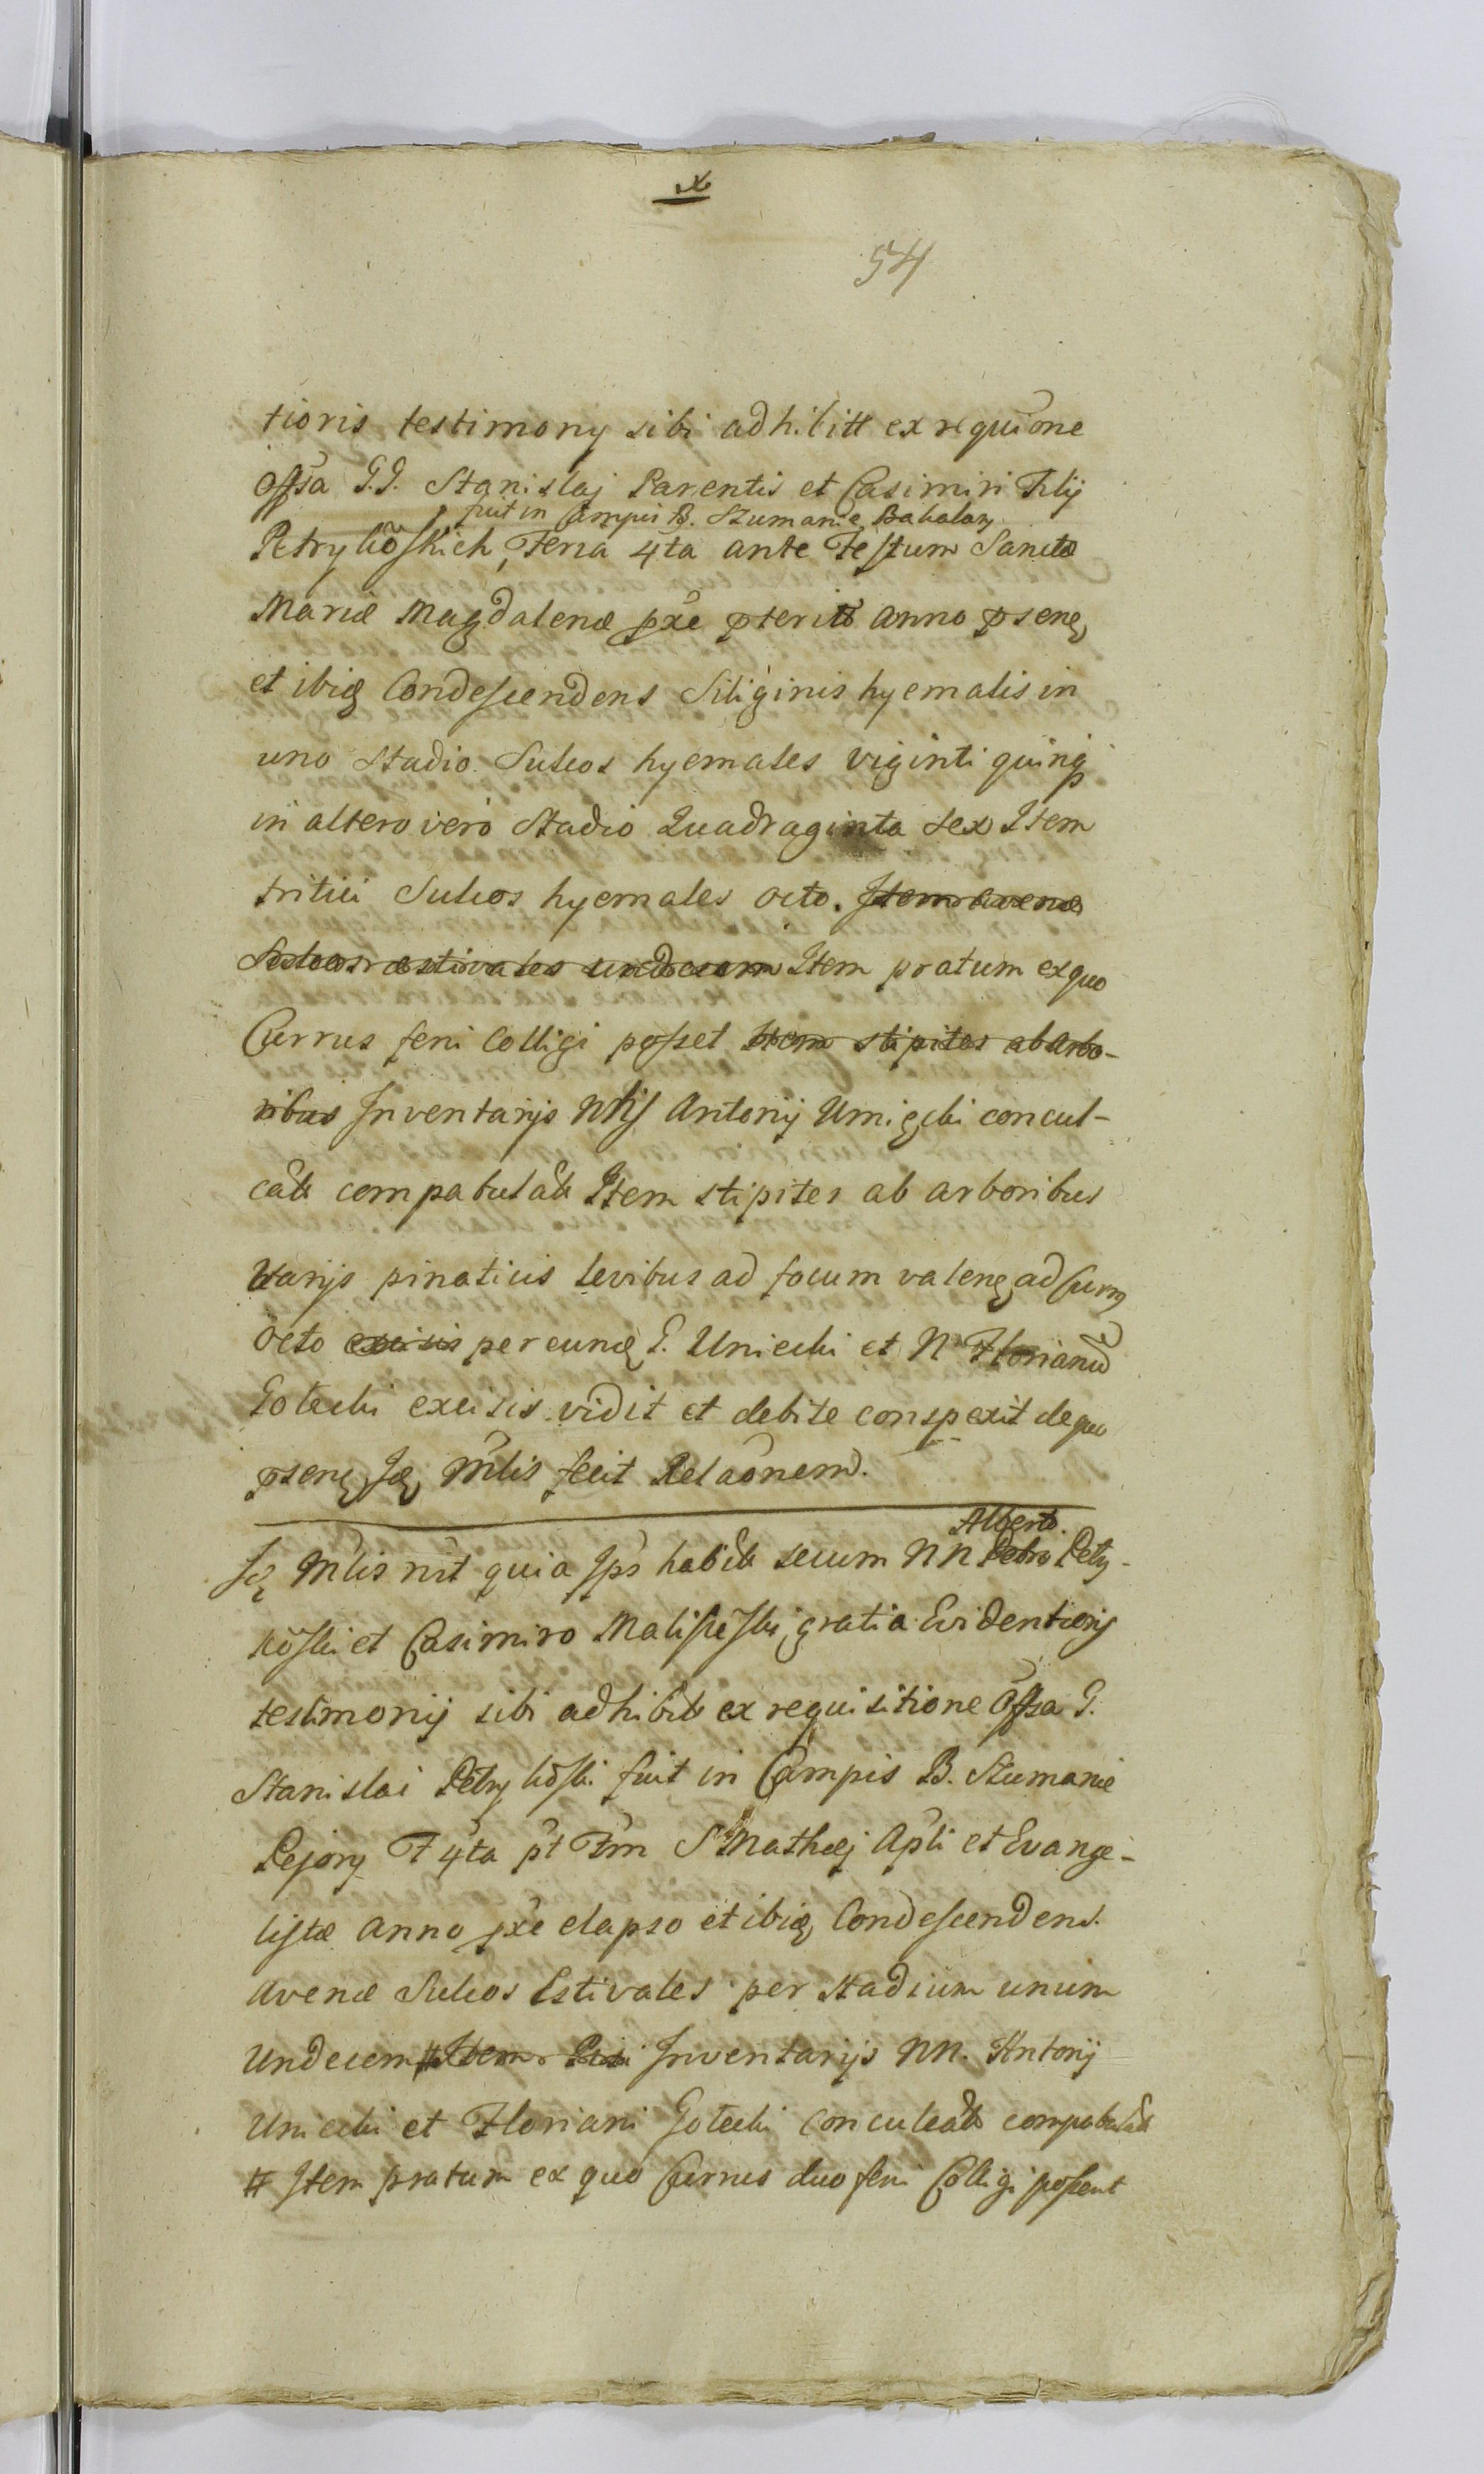 54
tioris testimonij sibi adhibitt ex requiõne
Offsa G.G. Stanislaj Parentis et Casimiri Filij
fuit in Campis B. Szumanie Bakalary
Petrykõskich, Feria 4ta ante Festum Sanctæ
Mariæ Magdalenæ pxe pterito anno psenq
et ibiq Condescendens Siliginis hyemalis in
uno Stadio Sulcos hyemales viginti quinq
in altero vero Stadio Quadraginta sex Item
tritici Sulcos hyemales octo. Item avenæ
Sulcos æstivales undecem Item pratum ex quo
Currus feni Colligi posset Item stipites ab arbo-
ribus Inventarijs Antonij Umięcki concul-
catt compabulatt Item stipites ab arboribus
Varijs pinaticis levibus ad focum valenq ad Curr9
octo excisis per eunq G. Uniecki et N Florianu
Golecki excisis vidit et debite conspexit de quo
psenq Iq Mlis fecit Relaõnem.
Alberto.
Iq Mlis rũt quia Ips habitt secum NN Petro Petry-
kõski et Casimiro Maliszeski gratia Evidentioris
testimonij sibi adhibitt ex requisitione Offsa G.
Stanislai Petrykõski fuit in Campis B. Szumanie
Pejory F 4ta pt Fm S Mathæj Apli et Evange-
listæ anno pxe elapso et ibiq Condescendens.
Avenæ Sulcos Estivales per Stadium unum
Undecem # Item Inventarijs NN. Antonij
Uniecki et Floriani Golecki conculcatt compabulatt
# Item pratum ex quo Currus duo feni Colligi possent